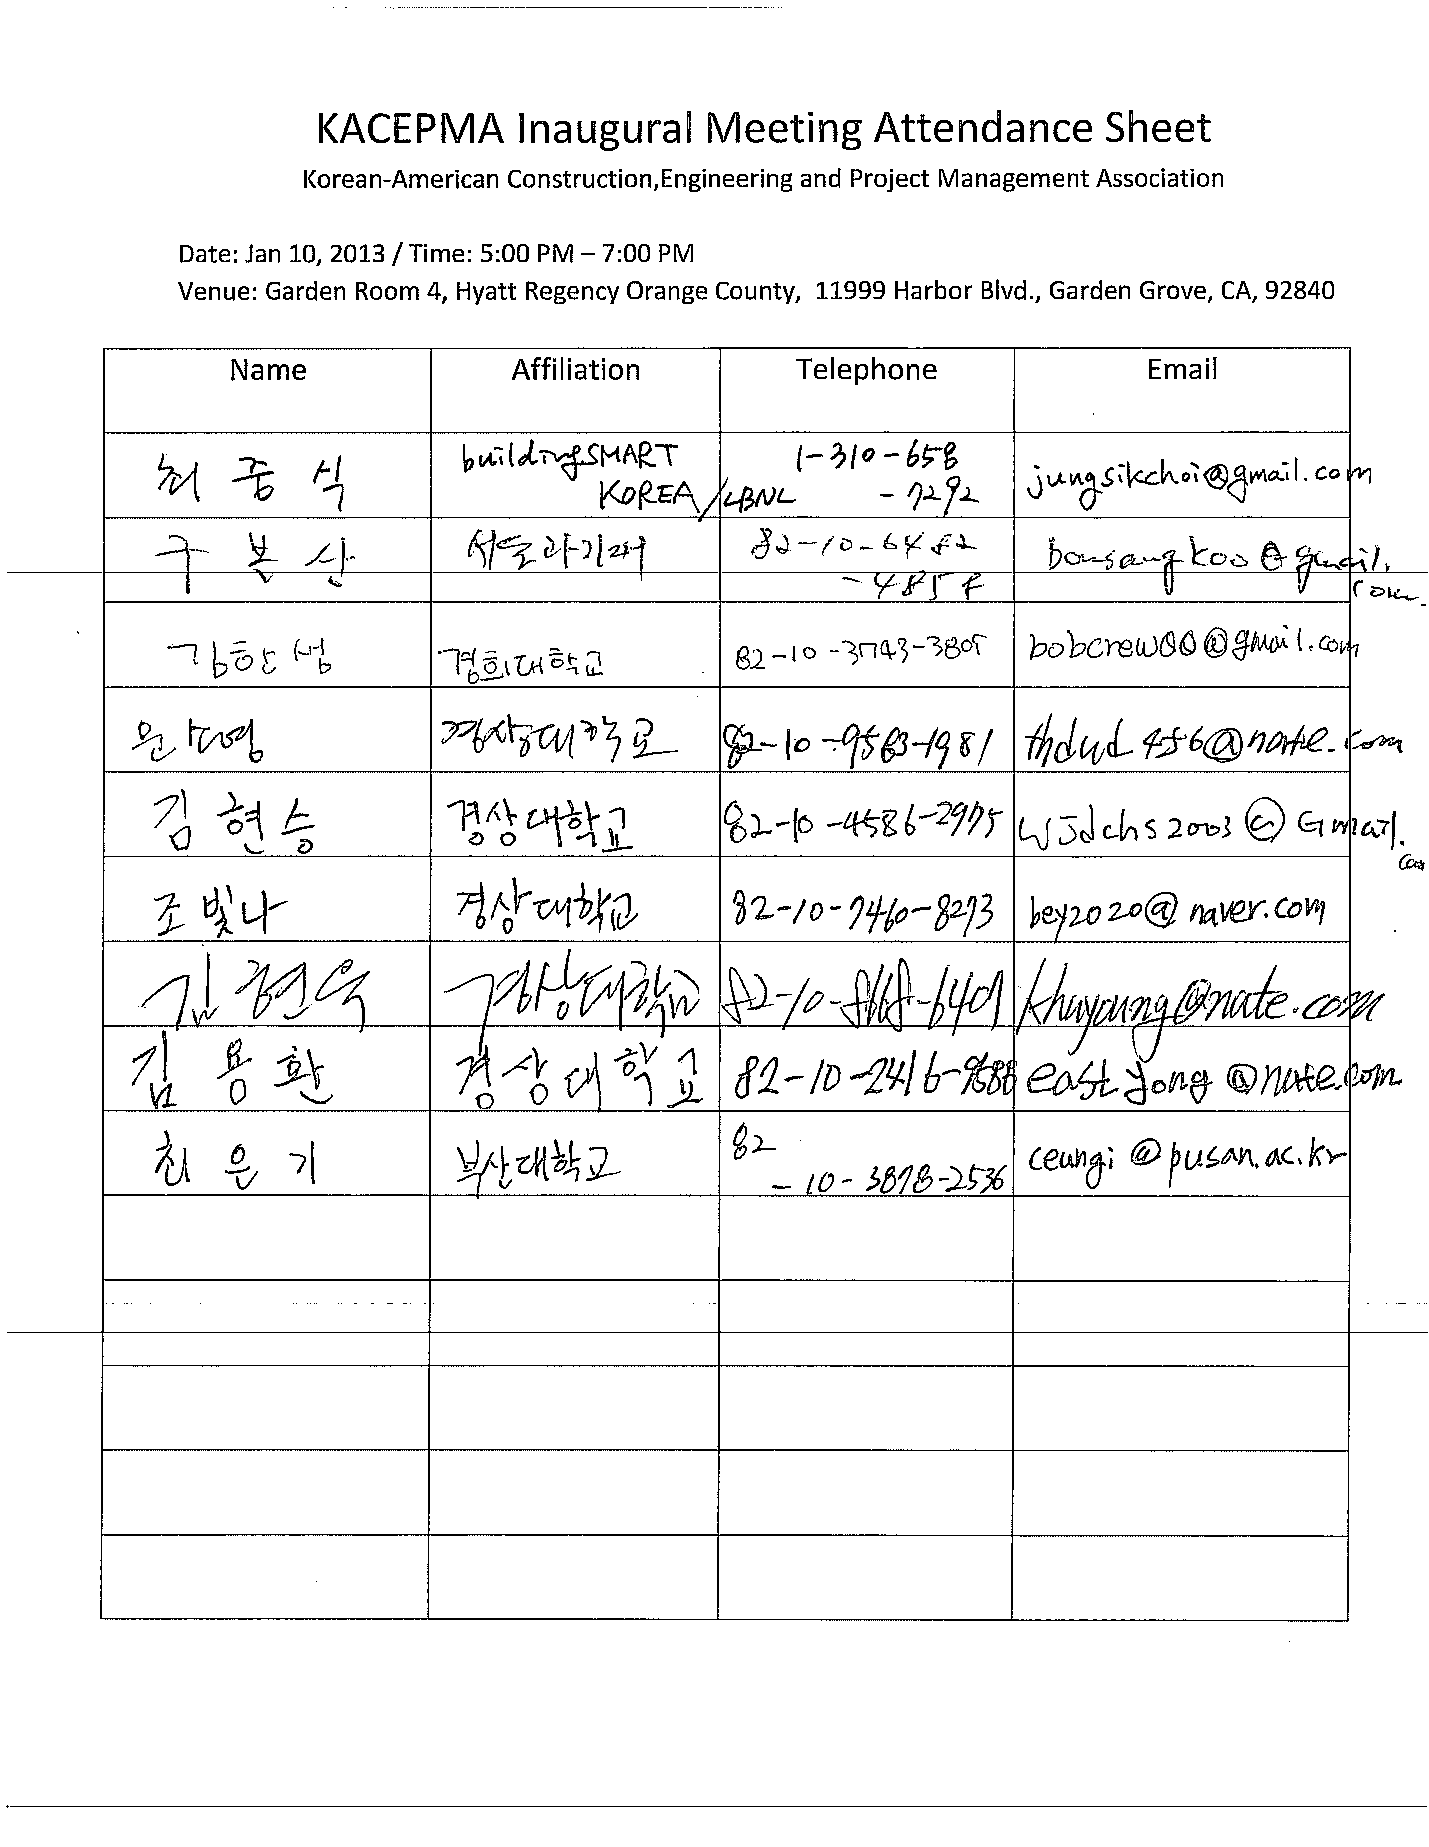 KACEPMA Inaugural Meeting Attendance Sheet
Korean-American Construction,Engineering and Project Management Association
Date: Jan 10, 2013 / Time: 5:00 PM – 7:00 PM
Venue: Garden Room 4, Hyatt Regency Orange County, 11999 Harbor Blvd., Garden Grove, CA, 92840
Name Affiliation Telephone Email
최중식 buildingSMART KOREA/LBNL 1-310-658-7292 jungsikchoi@gmail.com
구본상 서울과기대 bonsangkoo@gmail.com
김한샘 경희대학교 82-10-3743-3805 @gmail.com
경상대학교 82-10-9563-1981 thdud456@nate.com
김현승 경상대학교 82-10-4586-2975 wjdchs2003@Gmail.com
조빛나 경상대학교 82-10-7460-8273 bey2020@naver.com
김현욱 경상대학교 @nate.com
김용환 경상대학교 eastyong@nate.com
최은기 부산대학교 82-10-3878-2536 ceungi@pusan.ac.kr